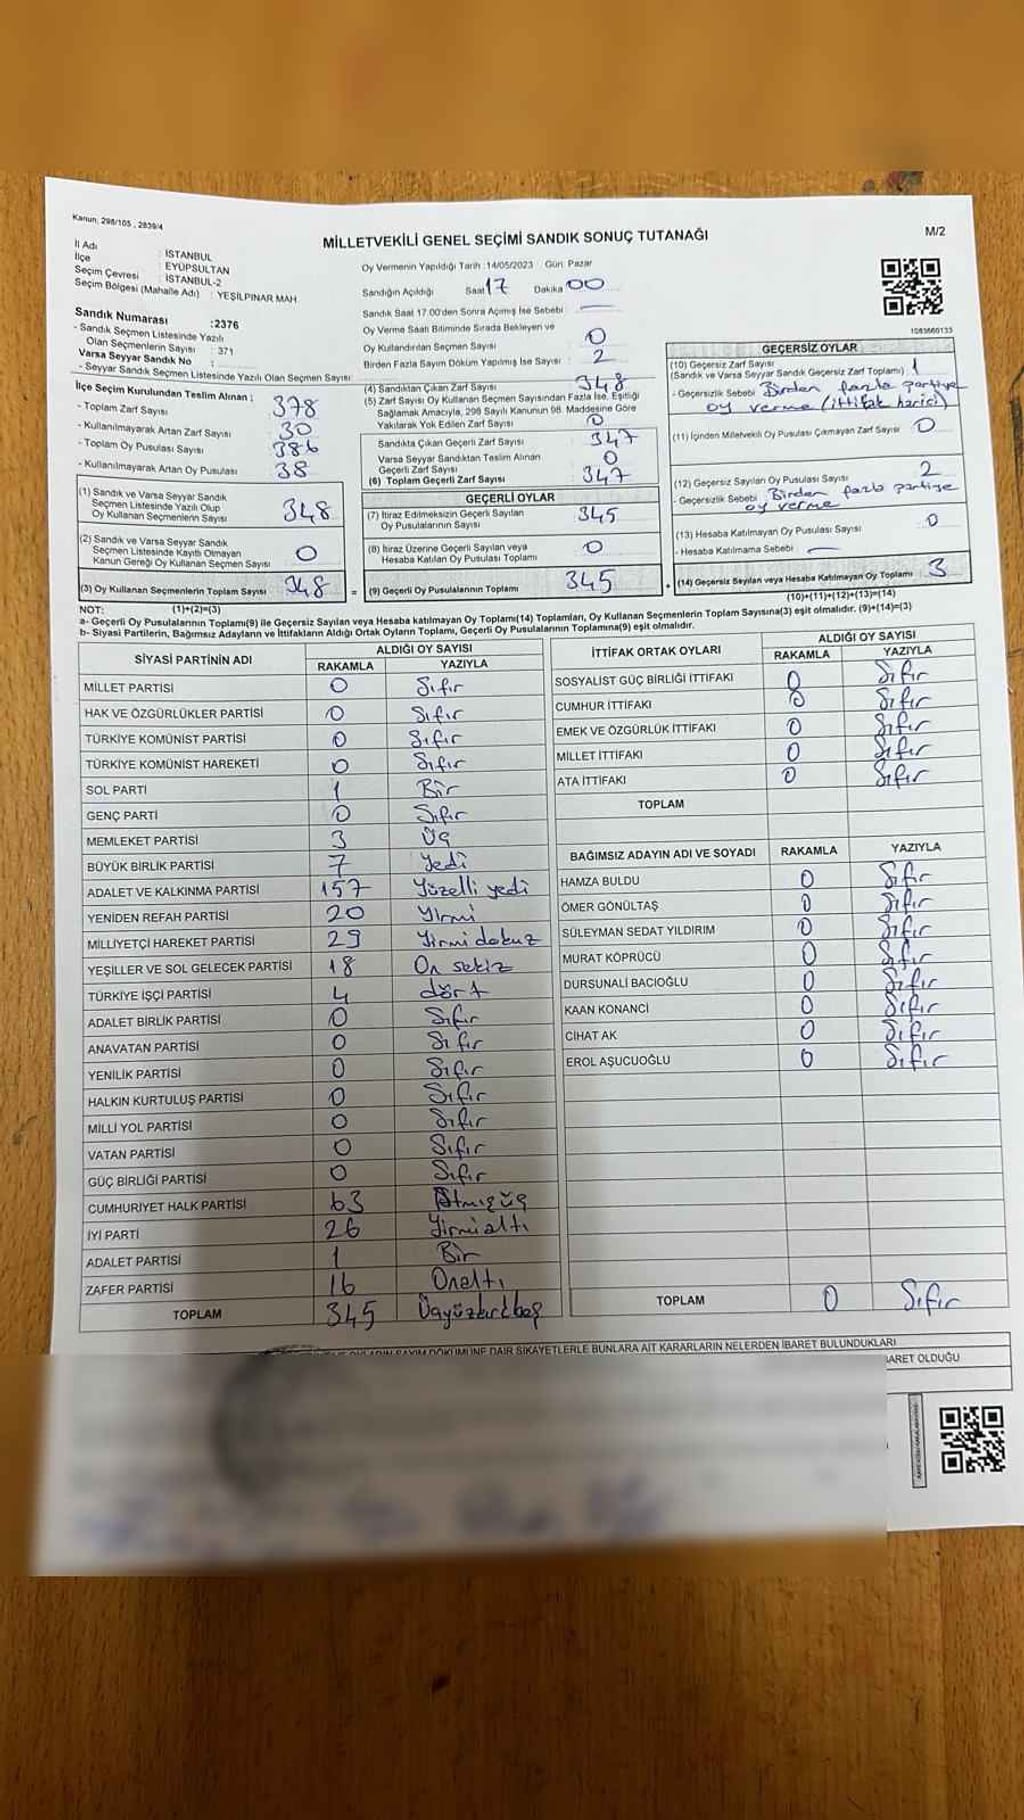 Kanun, 298/105 , 2839/4
MİLLETVEKİLİ GENEL SEÇİMİ SANDIK SONUÇ TUTANAĞI
M/2
İl Adı : İSTANBUL
İlçe : EYÜPSULTAN
Seçim Çevresi : İSTANBUL-2
Seçim Bölgesi (Mahalle Adı) : YEŞİLPINAR MAH.
Sandık Numarası :2376
- Sandık Seçmen Listesinde Yazılı
Olan Seçmenlerin Sayısı : 371
Varsa Seyyar Sandık No :
- Seyyar Sandık Seçmen Listesinde Yazılı Olan Seçmen Sayısı
İlçe Seçim Kurulundan Teslim Alınan :
- Toplam Zarf Sayısı 378
- Kullanılmayarak Artan Zarf Sayısı 30
- Toplam Oy Pusulası Sayısı 386
- Kullanılmayarak Artan Oy Pusulası 38
(1) Sandık ve Varsa Seyyar Sandık
Seçmen Listesinde Yazılı Olup
Oy Kullanan Seçmenlerin Sayısı 348
(2) Sandık ve Varsa Seyyar Sandık
Seçmen Listesinde Kayıtlı Olmayan
Kanun Gereği Oy Kullanan Seçmen Sayısı 0
(3) Oy Kullanan Seçmenlerin Toplam Sayısı 348 =
Oy Vermenin Yapıldığı Tarih :14/05/2023 Gün: Pazar
Sandığın Açıldığı Saat 17 Dakika 00
Sandık Saat 17.00'den Sonra Açımış İse Sebebi : —
Oy Verme Saati Bitiminde Sırada Bekleyen ve
Oy Kullandırılan Seçmen Sayısı 0
Birden Fazla Sayım Döküm Yapılmış İse Sayısı : 2
(4) Sandıktan Çıkan Zarf Sayısı 348
(5) Zarf Sayısı Oy Kullanan Seçmen Sayısından Fazla İse, Eşitliği
Sağlamak Amacıyla, 298 Sayılı Kanunun 98. Maddesine Göre
Yakılarak Yok Edilen Zarf Sayısı 0
Sandıkta Çıkan Geçerli Zarf Sayısı 347
Varsa Seyyar Sandıktan Teslim Alınan
Geçerli Zarf Sayısı 0
(6) Toplam Geçerli Zarf Sayısı 347
GEÇERLİ OYLAR
(7) İtiraz Edilmeksizin Geçerli Sayılan
Oy Pusulalarının Sayısı 345
(8) İtiraz Üzerine Geçerli Sayılan veya
Hesaba Katılan Oy Pusulası Toplamı 0
(9) Geçerli Oy Pusulalarının Toplamı 345 +
1083660133
GEÇERSİZ OYLAR
(10) Geçersiz Zarf Sayısı
(Sandık ve Varsa Seyyar Sandık Geçersiz Zarf Toplamı) 1
- Geçersizlik Sebebi Birden fazla partiye
oy verme (ittifak harici)
(11) İçinden Milletvekili Oy Pusulası Çıkmayan Zarf Sayısı 0
(12) Geçersiz Sayılan Oy Pusulası Sayısı 2
- Geçersizlik Sebebi Birden fazla partiye
oy verme
(13) Hesaba Katılmayan Oy Pusulası Sayısı 0
- Hesaba Katılmama Sebebi —
(14) Geçersiz Sayılan veya Hesaba Katılmayan Oy Toplamı 3
NOT: (1)+(2)=(3) (10)+(11)+(12)+(13)=(14)
a- Geçerli Oy Pusulalarının Toplamı(9) ile Geçersiz Sayılan veya Hesaba katılmayan Oy Toplamı(14) Toplamları, Oy Kullanan Seçmenlerin Toplam Sayısına(3) eşit olmalıdır. (9)+(14)=(3)
b- Siyasi Partilerin, Bağımsız Adayların ve İttifakların Aldığı Ortak Oyların Toplamı, Geçerli Oy Pusulalarının Toplamına(9) eşit olmalıdır.
SİYASİ PARTİNİN ADI ALDIĞI OY SAYISI
RAKAMLA YAZIYLA
MİLLET PARTİSİ 0 Sıfır
HAK VE ÖZGÜRLÜKLER PARTİSİ 0 Sıfır
TÜRKİYE KOMÜNİST PARTİSİ 0 Sıfır
TÜRKİYE KOMÜNİST HAREKETİ 0 Sıfır
SOL PARTİ 1 Bir
GENÇ PARTİ 0 Sıfır
MEMLEKET PARTİSİ 3 Üç
BÜYÜK BİRLİK PARTİSİ 7 Yedi
ADALET VE KALKINMA PARTİSİ 157 Yüzelli yedi
YENİDEN REFAH PARTİSİ 20 Yirmi
MİLLİYETÇİ HAREKET PARTİSİ 29 Yirmi dokuz
YEŞİLLER VE SOL GELECEK PARTİSİ 18 On sekiz
TÜRKİYE İŞÇİ PARTİSİ 4 dört
ADALET BİRLİK PARTİSİ 0 Sıfır
ANAVATAN PARTİSİ 0 Sıfır
YENİLİK PARTİSİ 0 Sıfır
HALKIN KURTULUŞ PARTİSİ 0 Sıfır
MİLLİ YOL PARTİSİ 0 Sıfır
VATAN PARTİSİ 0 Sıfır
GÜÇ BİRLİĞİ PARTİSİ 0 Sıfır
CUMHURİYET HALK PARTİSİ 63 Atmışüç
İYİ PARTİ 26 Yirmialtı
ADALET PARTİSİ 1 Bir
ZAFER PARTİSİ 16 Onaltı
TOPLAM 345 Üçyüzkırkbeş
İTTİFAK ORTAK OYLARI ALDIĞI OY SAYISI
RAKAMLA YAZIYLA
SOSYALİST GÜÇ BİRLİĞİ İTTİFAKI 0 Sıfır
CUMHUR İTTİFAKI 0 Sıfır
EMEK VE ÖZGÜRLÜK İTTİFAKI 0 Sıfır
MİLLET İTTİFAKI 0 Sıfır
ATA İTTİFAKI 0 Sıfır
TOPLAM
BAĞIMSIZ ADAYIN ADI VE SOYADI RAKAMLA YAZIYLA
HAMZA BULDU 0 Sıfır
ÖMER GÖNÜLTAŞ 0 Sıfır
SÜLEYMAN SEDAT YILDIRIM 0 Sıfır
MURAT KÖPRÜCÜ 0 Sıfır
DURSUNALİ BACIOĞLU 0 Sıfır
KAAN KONANCİ 0 Sıfır
CİHAT AK 0 Sıfır
EROL AŞUCUOĞLU 0 Sıfır
TOPLAM 0 Sıfır
OYLARIN SAYIM DÖKÜMÜNE DAİR ŞİKAYETLERLE BUNLARA AİT KARARLARIN NELERDEN İBARET BULUNDUKLARI
BARET OLDUĞU